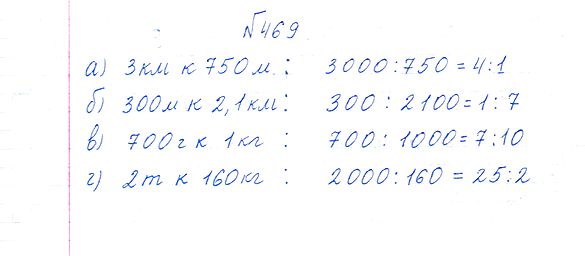 №469
а) 3км к 750м : 3000:750=4:1
б) 300м к 2,1км: 300 : 2100=1:7
в) 700г к 1кг : 700 : 1000=7:10
г) 2т к 160кг : 2000:160 = 25:2